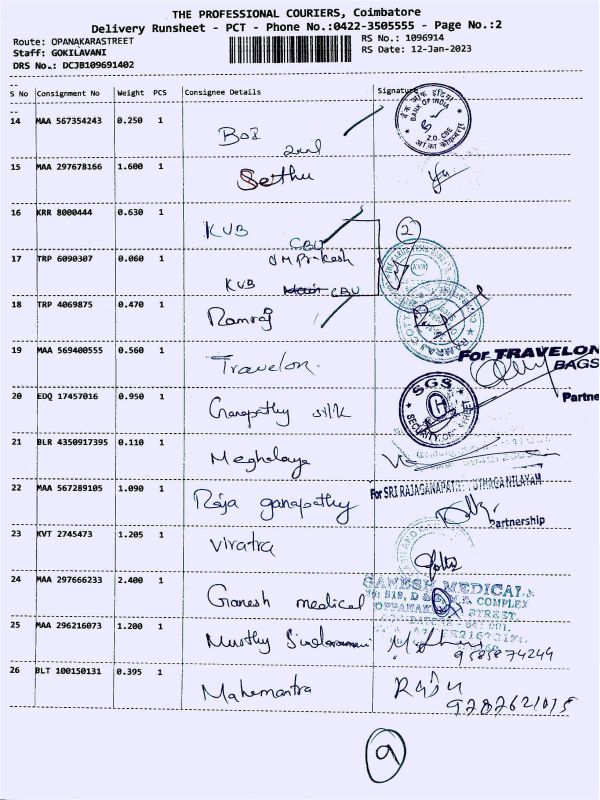 THE PROFESSIONAL COURIERS, Coimbatore
Delivery Runsheet - PCT - Phone No.:0422-3505555 - Page No.:2
Route: OPANAKARASTREET
Staff: GOKILAVANI
DRS No.: DCJB109691402
RS No.: 1096914
RS Date: 12-Jan-2023
S No Consignment No Weight PCS Consignee Details Signature
14 MAA 567354243 0.250 1
BOI
BANK OF INDIA
Z.O. CBE
15 MAA 297678166 1.600 1
Sethu
16 KRR 8000444 0.630 1
KVB
CBU
2
17 TRP 6090307 0.060 1
KVB
CBU
KVB
18 TRP 4069875 0.470 1
Ramraj
19 MAA 569400555 0.560 1
Travelon.
For TRAVELON
BAGS
Partne
20 EDQ 17457016 0.950 1
Ganapathy silk
SGS
SECURITY
21 BLR 4350917395 0.110 1
Meghalaya
22 MAA 567289105 1.090 1
Raja ganapathy
For SRI RAJAGANAPATHY
NILAYAM
Partnership
23 KVT 2745473 1.205 1
Viratra
24 MAA 297666233 2.400 1
Ganesh medical
GANESH MEDICAL
COMPLEX
STREET
25 MAA 296216073 1.200 1
Murthy
9585874249
26 BLT 100150131 0.395 1
Mahemantra
RAJU
9787621075
9